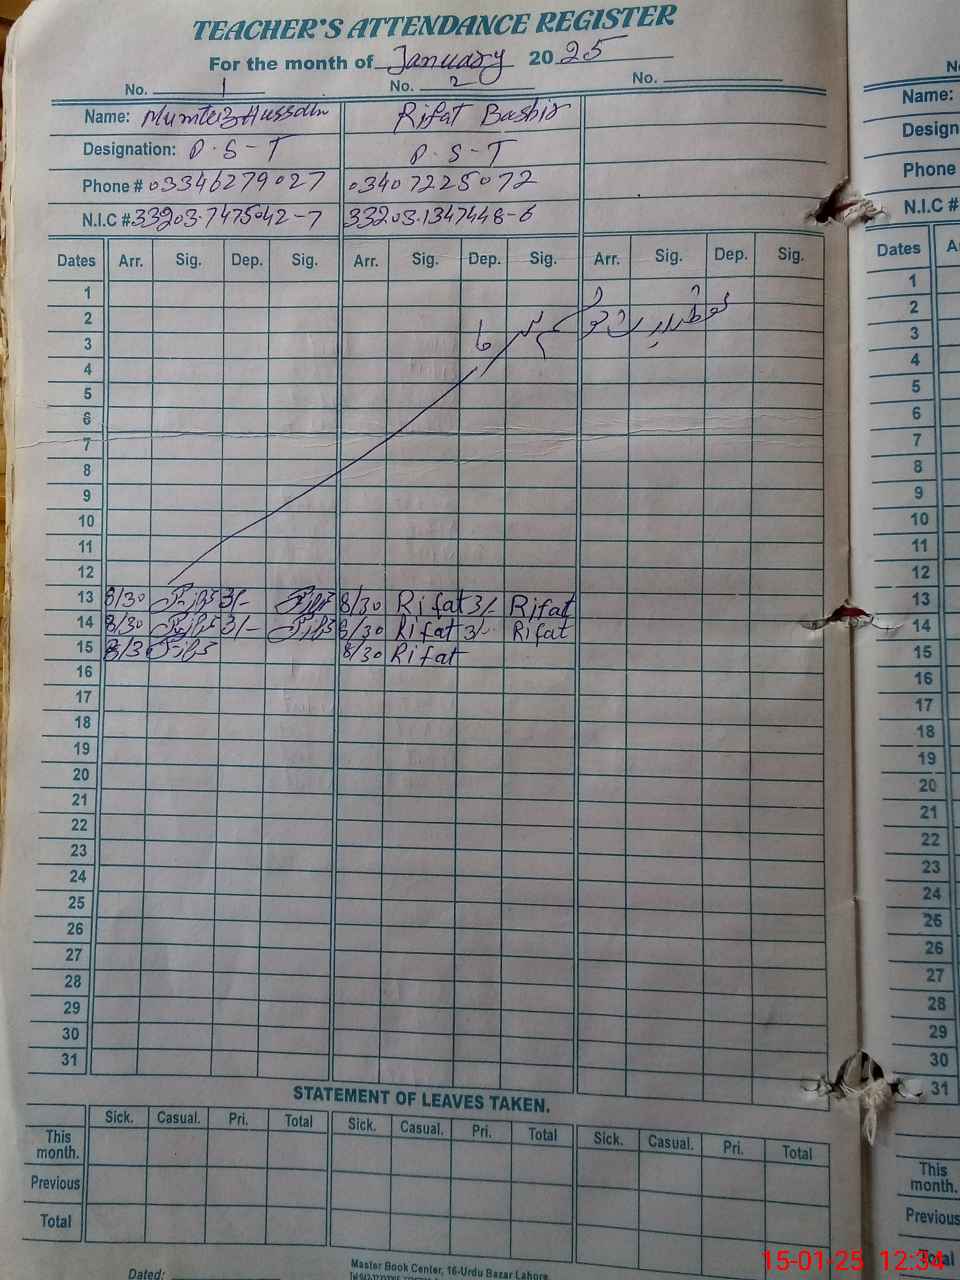 TEACHER'S ATTENDANCE REGISTER
For the month of January 2025
No. 1 No. 2 No.
Name: Mumtaz Hussain Rifat Bashir
Designation: P.S-T P.S-T
Phone # 03346279027 03407225072
N.I.C # 33203-7475042-7 33203-1347448-6
Dates Arr. Sig. Dep. Sig. Arr. Sig. Dep. Sig. Arr. Sig. Dep. Sig.
1
2
3
4
5
6
7
8
9
10
11
12
13 8/30 3/- 8/30 Rifat 3/- Rifat
14 8/30 3/- 8/30 Rifat 3/- Rifat
15 8/30 8/30 Rifat
16
17
18
19
20
21
22
23
24
25
26
27
28
29
30
31
STATEMENT OF LEAVES TAKEN.
Sick. Casual. Pri. Total Sick. Casual. Pri. Total Sick. Casual. Pri. Total
This month.
Previous
Total
Dated:
Master Book Center, 16-Urdu Bazar Lahore
No.
Name:
Design
Phone
N.I.C #
Dates A
1
2
3
4
5
6
7
8
9
10
11
12
13
14
15
16
17
18
19
20
21
22
23
24
25
26
27
28
29
30
31
This month.
Previous
Total
15-01-25 12:34